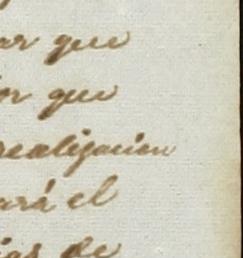 ar que
or que
realizacion
ará el
ias de